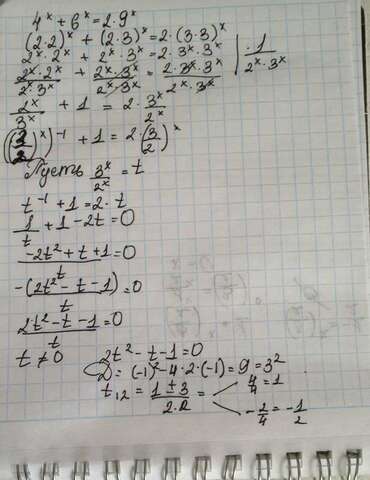 4^x + 6^x = 2·9^x
(2·2)^x + (2·3)^x = 2·(3·3)^x
2^x·2^x + 2^x·3^x = 2·3^x·3^x | ·1/(2^x·3^x)
(2^x·2^x)/(2^x·3^x) + (2^x·3^x)/(2^x·3^x) = (2·3^x·3^x)/(2^x·3^x)
2^x/3^x + 1 = 2·3^x/2^x
((3/2)^x)^-1 + 1 = 2·(3/2)^x
Пусть 3^x/2^x = t
t^-1 + 1 = 2·t
1/t + 1 - 2t = 0
(-2t² + t + 1)/t = 0
-(2t² - t - 1)/t = 0
(2t² - t - 1)/t = 0
t ≠ 0 2t² - t - 1 = 0
D = (-1)² - 4·2·(-1) = 9 = 3²
t12 = (1 ± 3)/(2·2) =
4/4 = 1
-2/4 = -1/2